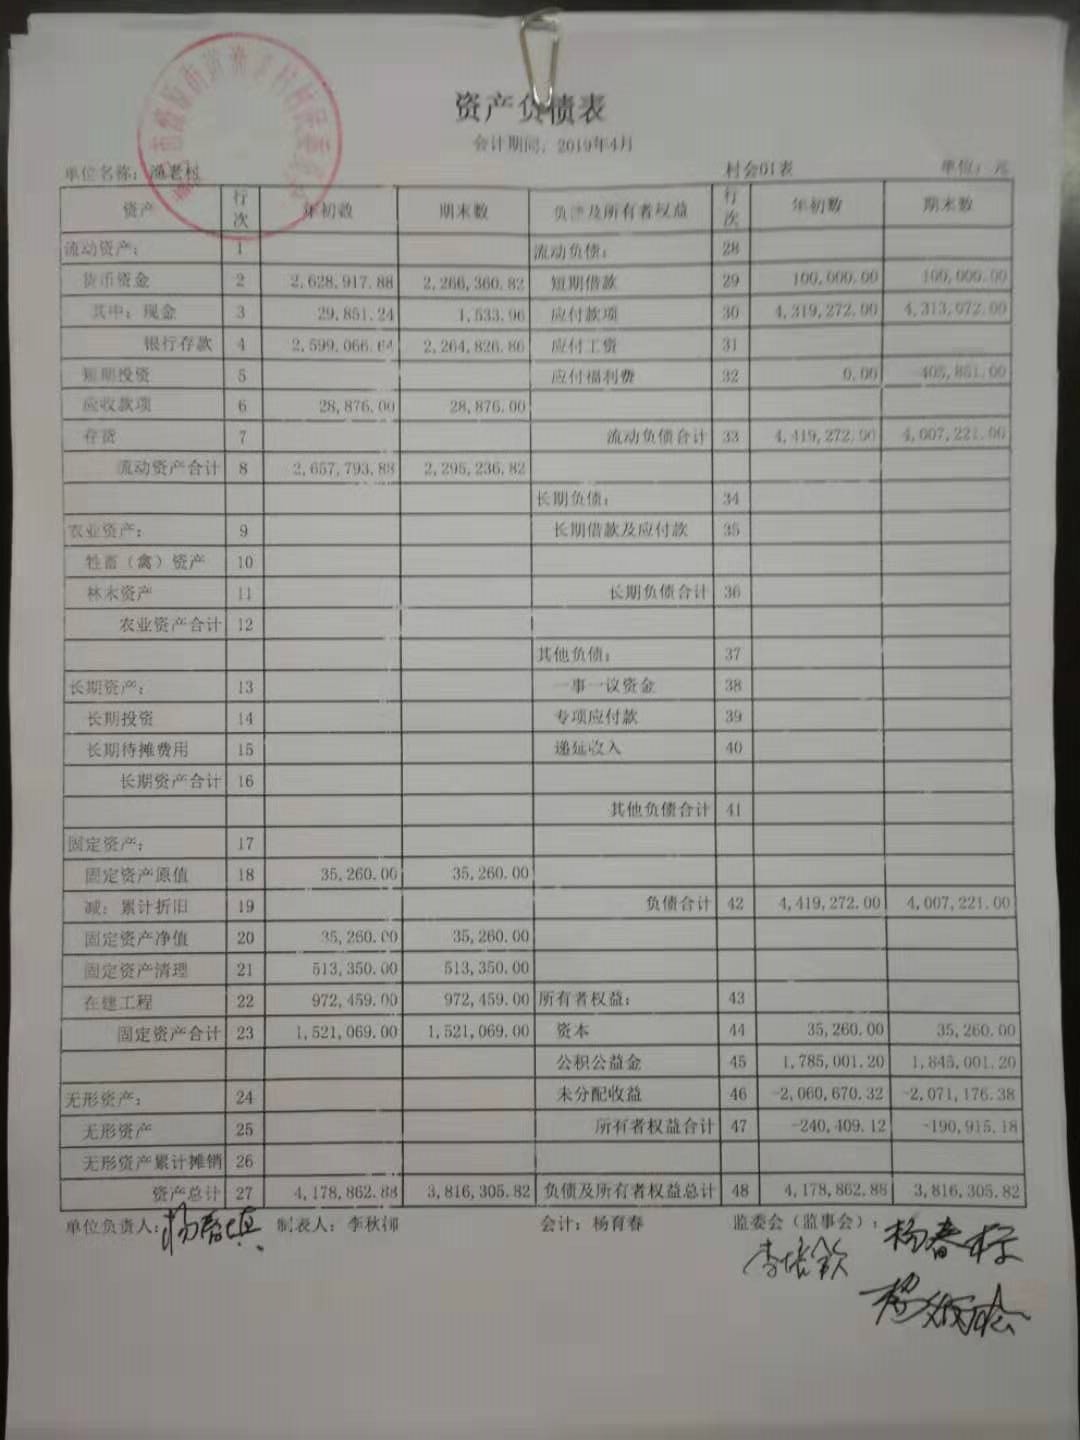 资产负债表
会计期间：2019年4月
单位名称：渔老村 村会01表 单位：元
资产 行次 年初数 期末数 负债及所有者权益 行次 年初数 期末数
流动资产： 1 流动负债： 28
货币资金 2 2,628,917.88 2,266,360.82 短期借款 29 100,000.00 100,000.00
其中：现金 3 29,851.24 1,533.96 应付款项 30 4,319,272.00 4,313,072.00
银行存款 4 2,599,066.64 2,264,826.86 应付工资 31
短期投资 5 应付福利费 32 0.00 -405,851.00
应收款项 6 28,876.00 28,876.00
存货 7 流动负债合计 33 4,419,272.00 4,007,221.00
流动资产合计 8 2,657,793.88 2,295,236.82
长期负债： 34
农业资产： 9 长期借款及应付款 35
牲畜（禽）资产 10
林木资产 11 长期负债合计 36
农业资产合计 12
其他负债： 37
长期资产： 13 一事一议资金 38
长期投资 14 专项应付款 39
长期待摊费用 15 递延收入 40
长期资产合计 16
其他负债合计 41
固定资产： 17
固定资产原值 18 35,260.00 35,260.00
减：累计折旧 19 负债合计 42 4,419,272.00 4,007,221.00
固定资产净值 20 35,260.00 35,260.00
固定资产清理 21 513,350.00 513,350.00
在建工程 22 972,459.00 972,459.00 所有者权益： 43
固定资产合计 23 1,521,069.00 1,521,069.00 资本 44 35,260.00 35,260.00
公积公益金 45 1,785,001.20 1,845,001.20
无形资产： 24 未分配收益 46 -2,060,670.32 -2,071,176.38
无形资产 25 所有者权益合计 47 -240,409.12 -190,915.18
无形资产累计摊销 26
资产总计 27 4,178,862.88 3,816,305.82 负债及所有者权益总计 48 4,178,862.88 3,816,305.82
单位负责人： 制表人：李秋 会计：杨育春 监委会（监事会）： 杨春
李培钦